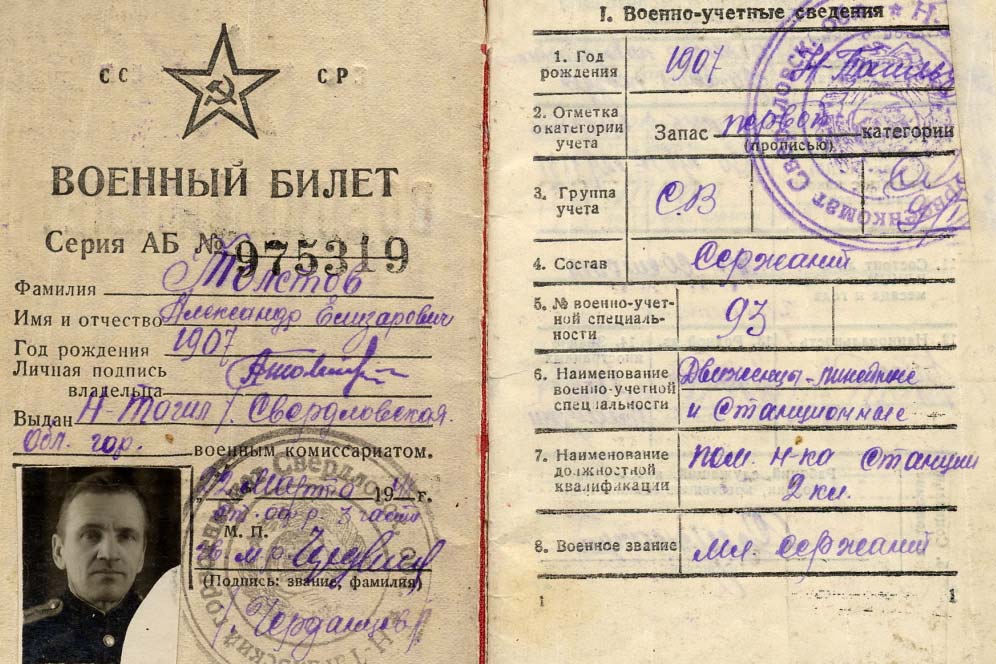 СС СР
ВОЕННЫЙ БИЛЕТ
Серия АБ № 975319
Фамилия Толстов
Имя и отчество Александр Елизарович
Год рождения 1907
Личная подпись
владельца
Выдан Н-Тагил / Свердловская
Обл. гор. военным комиссариатом.
марта 194 г.
3 части
М. П.
(Подпись: звание, фамилия)
I. Военно-учетные сведения
1. Год рождения
1907
2. Отметка о категории учета
Запас первой категории
(прописью)
3. Группа учета
С.В
4. Состав
Сержантский
5. № военно-учет-
ной специаль-
ности
93
6. Наименование
военно-учетной
специальности
Движенцы-линейные
и Станционные
7. Наименование
должностной
квалификации
пом. н-ка станции
2 кл.
8. Военное звание
мл. сержант
1
1